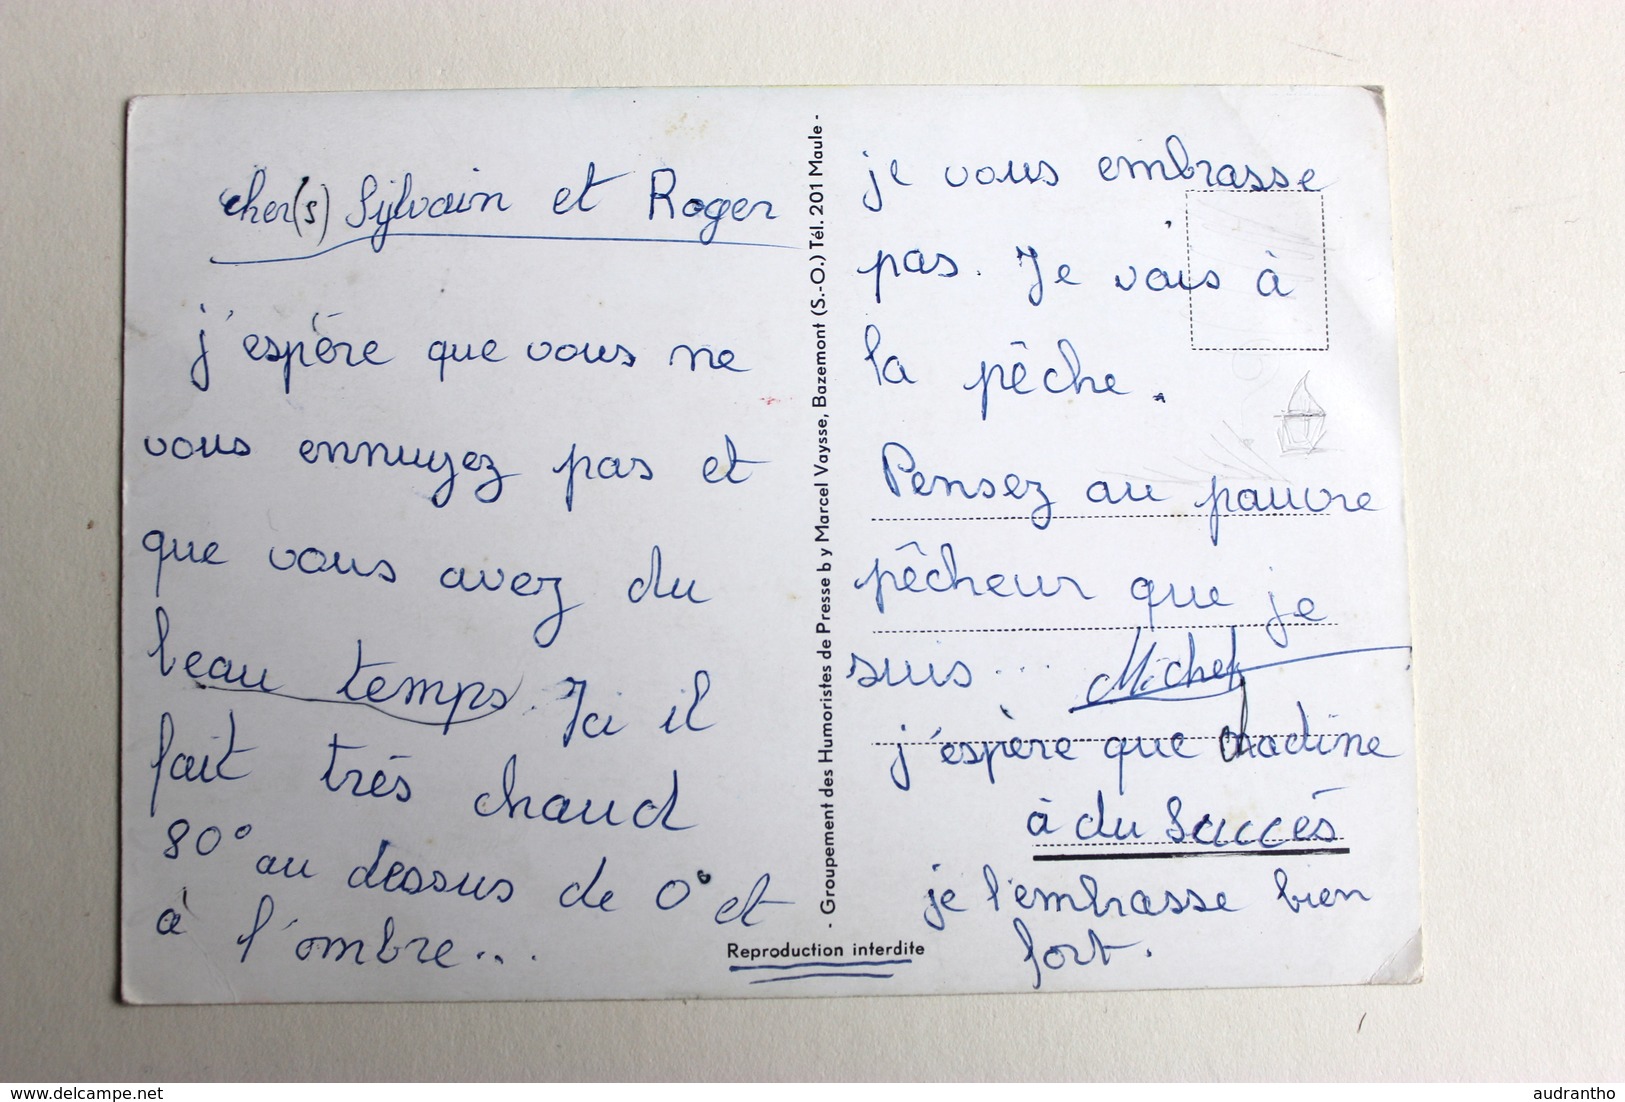 cher(s) Sylvain et Roger
j'espère que vous ne
vous ennuyez pas et
que vous avez du
beau temps. Ici il
fait très chaud
80° au dessus de 0° et
à l'ombre...
- Groupement des Humoristes de Presse by Marcel Vaysse, Bazemont (S.-O.) Tél. 201 Maule -
Reproduction interdite
je vous embrasse
pas. Je vais à
la pêche.
Pensez au pauvre
pêcheur que je
suis... Michel
j'espère que
à du Succès
je l'embrasse bien
fort.
delcampe.net
audrantho